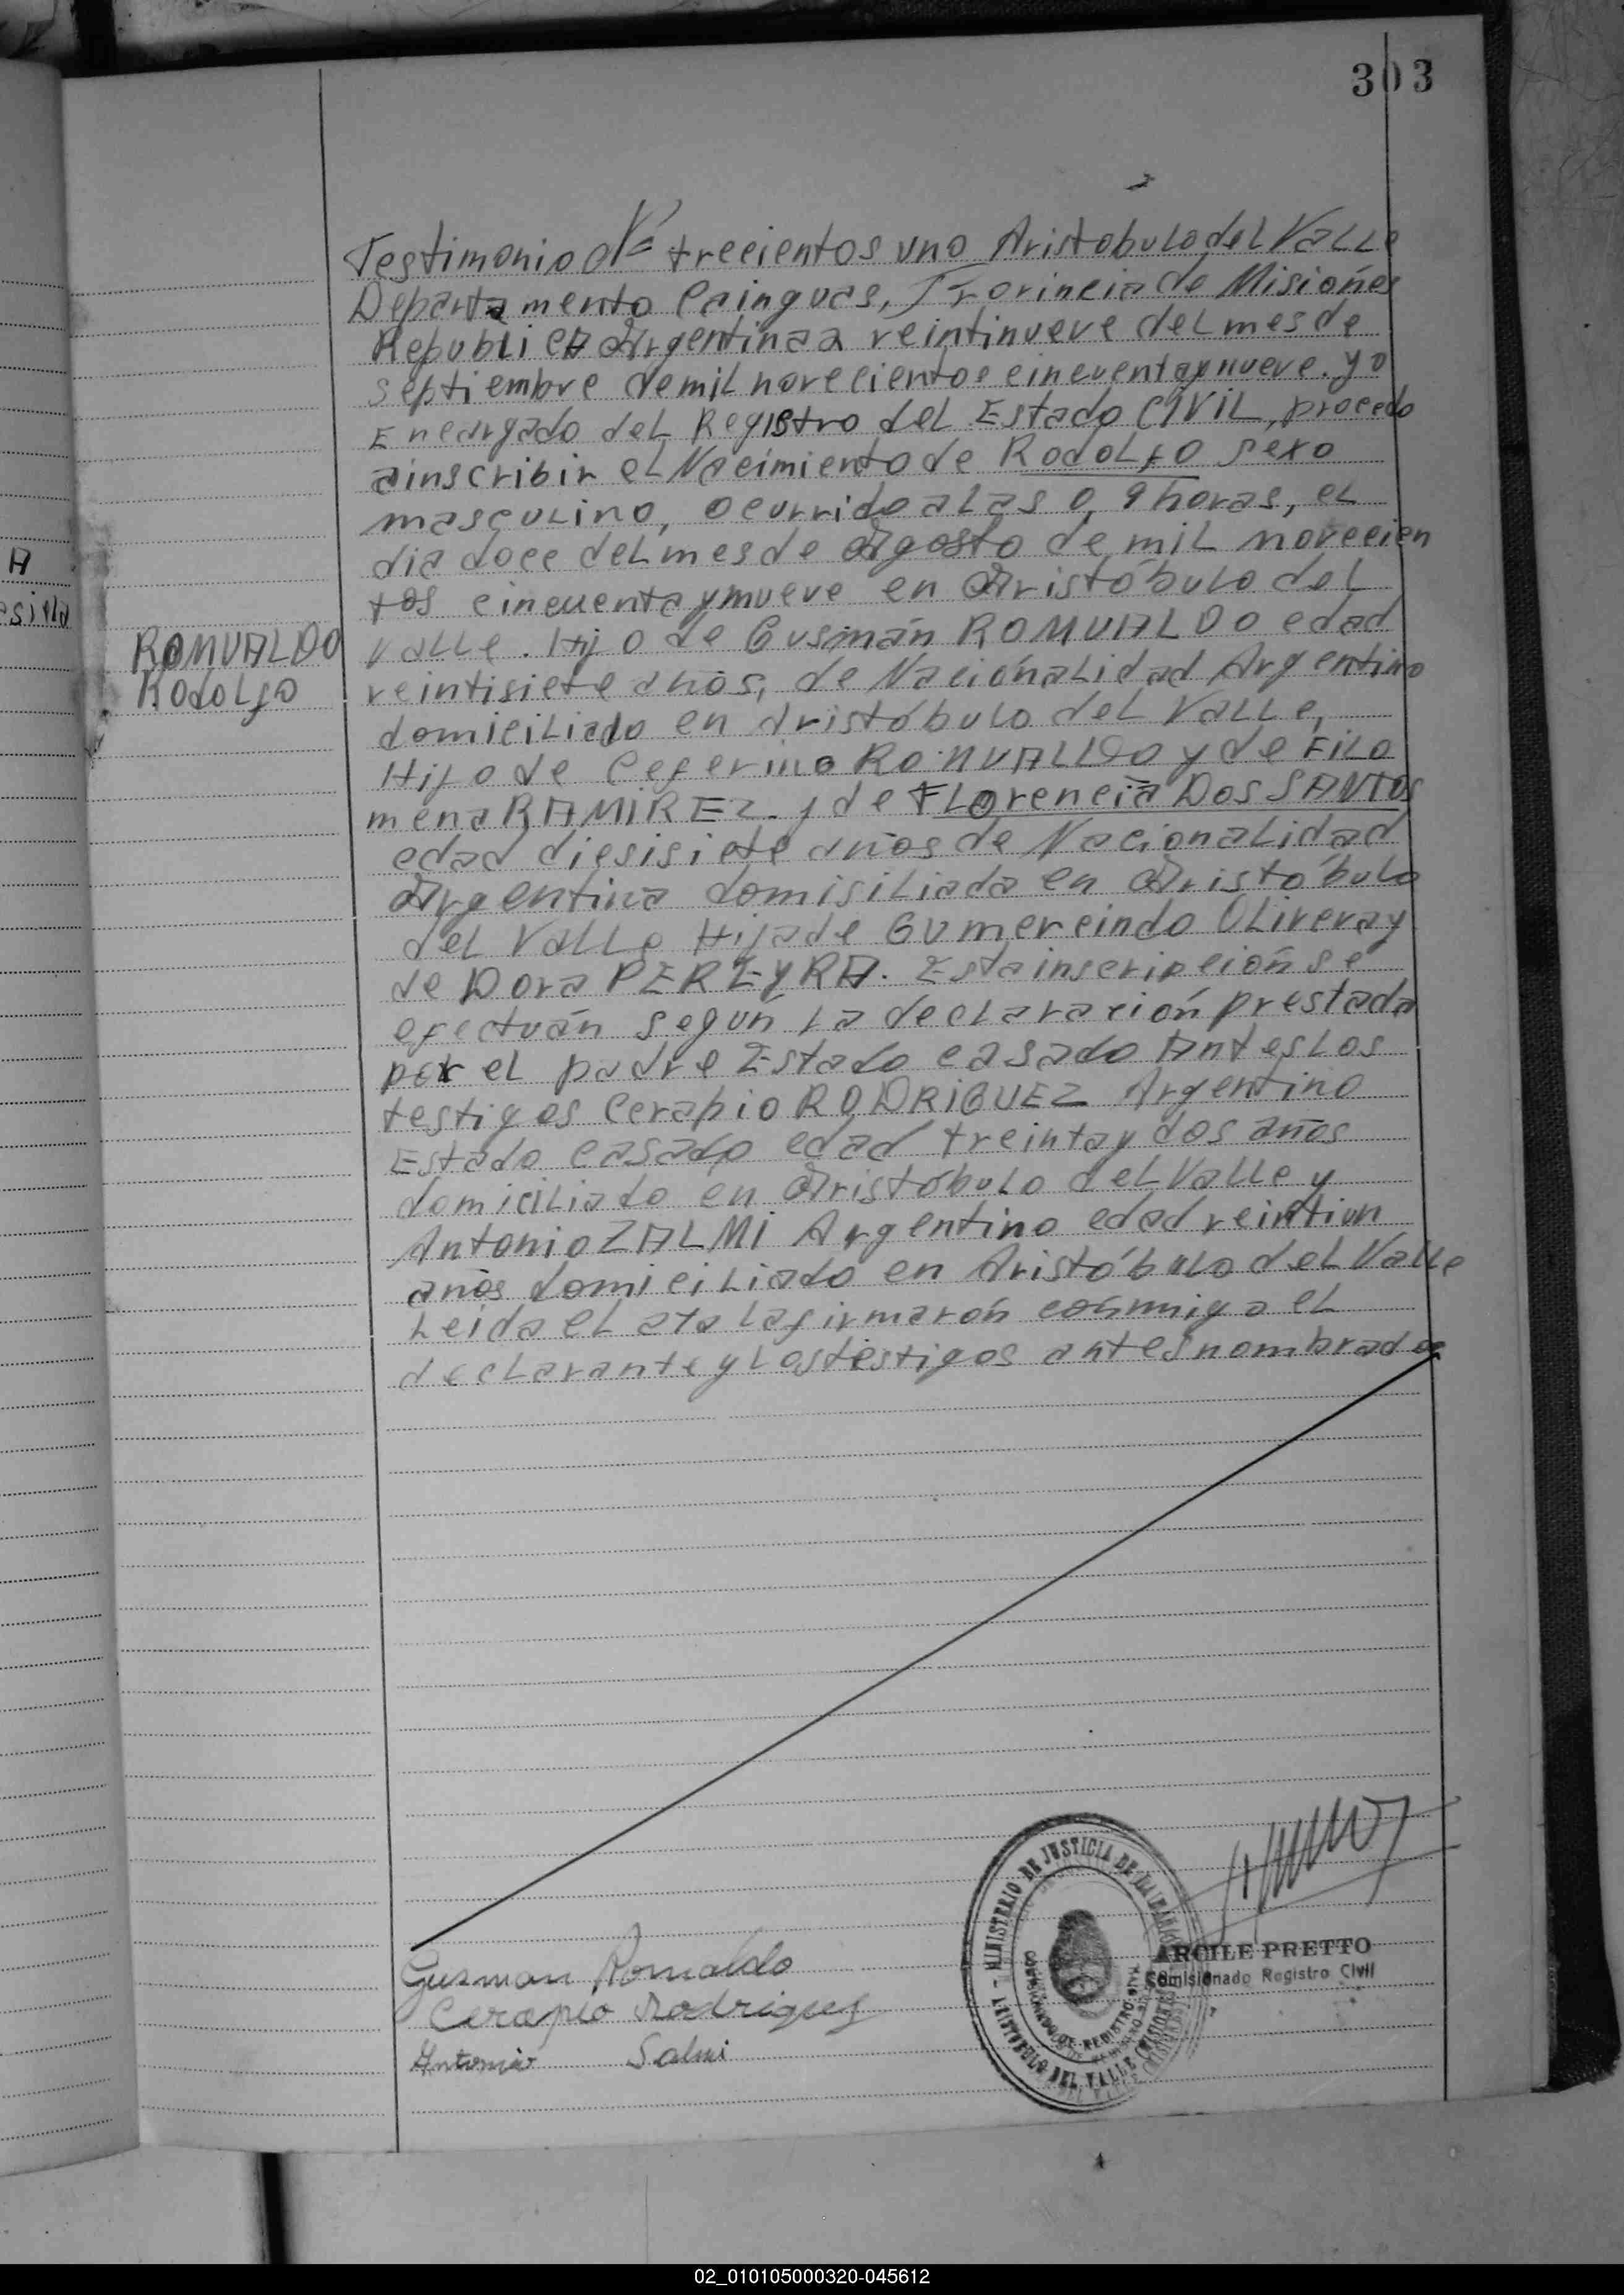 303
Testimonio Nº trecientos uno Aristobulo del Valle
Departamento Cainguas, Provincia de Misiones
Republica Argentina a veintinueve del mes de
septiembre de mil novecientos cincuenta y nueve. yo
Encargado del Registro del Estado CIVIL, procedo
a inscribir el Nacimiento de RODOLFO sexo
masculino, ocurrido a las 0,9 horas, el
dia doce del mes de Agosto de mil novecien
tos cincuenta y nueve en Aristóbulo del
Valle. Hijo de Gusmán ROMUALDO edad
ROMUALDO
Rodolfo
veintisiete años, de Nacionalidad Argentino
domiciliado en Aristóbulo del Valle,
Hijo de Ceferino ROMUALDO y de Filo
mena RAMIREZ. y de FLorencia Dos SANTOS
edad diesisiete años de Nacionalidad
Argentina domisiliada en Aristóbulo
del Valle Hija de Gumercindo Olivera y
de Dora PEREYRA. Esta inscripción se
efectuán segun la declaración prestada
por el padre Estado casado Antes los
testigos Cerapio RODRIGUEZ Argentino
Estado casado edad treinta y dos años
domiciliado en Aristóbulo del Valle y
Antonio ZALMI Argentino edad veintiun
años domiciliado en Aristóbulo del Valle
Leida el ata la firmarón conmigo el
declarante y los testigos antes nombrados
Gusman Romaldo
Cerapio Rodriguez
Antonio Salmi
MINISTERIO DE JUSTICIA DE LA
ARISTOBULO DEL VALLE (MISIONES)
ARCILE PRETTO
Comisionado Registro Civil
A
esida
02_010105000320-045612